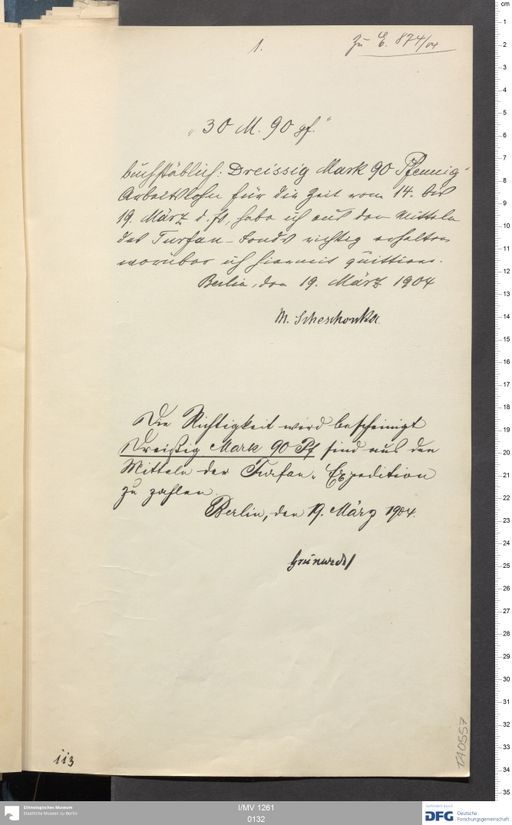 1.
zu E. 874/04
„30 M. 90 pf."
buchstäblich: Dreissig Mark 90 Pfennig
Arbeitslohn für die Zeit vom 14. bis
19. März d. Js. habe ich aus den Mitteln
des Turfan-Fonds richtig erhalten
worüber ich hiermit quittiere.
Berlin, den 19. März 1904
M. Scheschonka.
Die Richtigkeit wird bescheinigt
Dreißig Mark 90 Pf sind aus den
Mitteln der Turfan-Expedition
zu zahlen
Berlin, den 19. März 1904.
Grünwedel
113
TA 0557
Ethnologisches Museum
Staatliche Museen zu Berlin
I/MV 1261
0132
DFG Deutsche
Forschungsgemeinschaft
cm
1
2
3
4
5
6
7
8
9
10
11
12
13
14
15
16
17
18
19
20
21
22
23
24
25
26
27
28
29
30
31
32
33
34
35